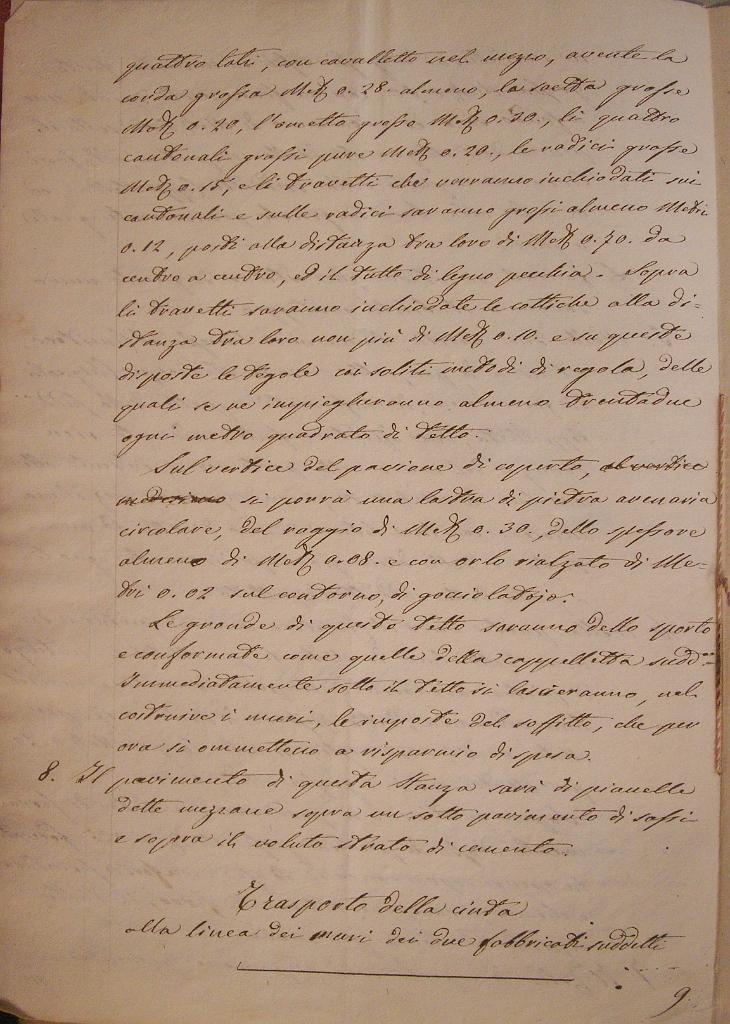 quattro lati, con cavalletto nel mezzo, avente la
corda grossa Met. 0.28. almeno, la saetta grossa
Met. 0.20, l'ometto grosso Met. 0.20., li quattro
cantonali grossi pure Met. 0.20., le radici grosse
Met. 0.15, e li travetti che verranno inchiodati sui
cantonali e sulle radici saranno grossi almeno Metri
0.12, posti alla distanza tra loro di Met. 0.70. da
centro a centro, ed il tutto di legno pecchia. Sopra
li travetti saranno inchiodate le cottiche alla di-
stanza tra loro non più di Met. 0.10. e su queste
disposte le tegole coi soliti metodi di regola, delle
quali se ne impiegheranno almeno trentadue
ogni metro quadrato di tetto.
Sul vertice del pavione di coperto, al vertice
medesimo si porrà una lastra di pietra arenaria
circolare, del raggio di Met. 0.30., dello spessore
almeno di Met. 0.08. e con orlo rialzato di Me-
tri 0.02 sul contorno, di gocciolatojo.
Le gronde di questo tetto saranno dello sporto
e conformate come quelle della cappelletta sudd.
Immediatamente sotto il tetto si lascieranno, nel
costruire i muri, le imposte del soffitto, che per
ora si ommettono a risparmio di spesa.
8. Il pavimento di questa Stanza sarà di pianelle
dette mezzane sopra un sotto pavimento di sassi
e sopra il voluto strato di cemento.
Trasporto della cinta
alla linea dei muri dei due fabbricati suddetti
9.